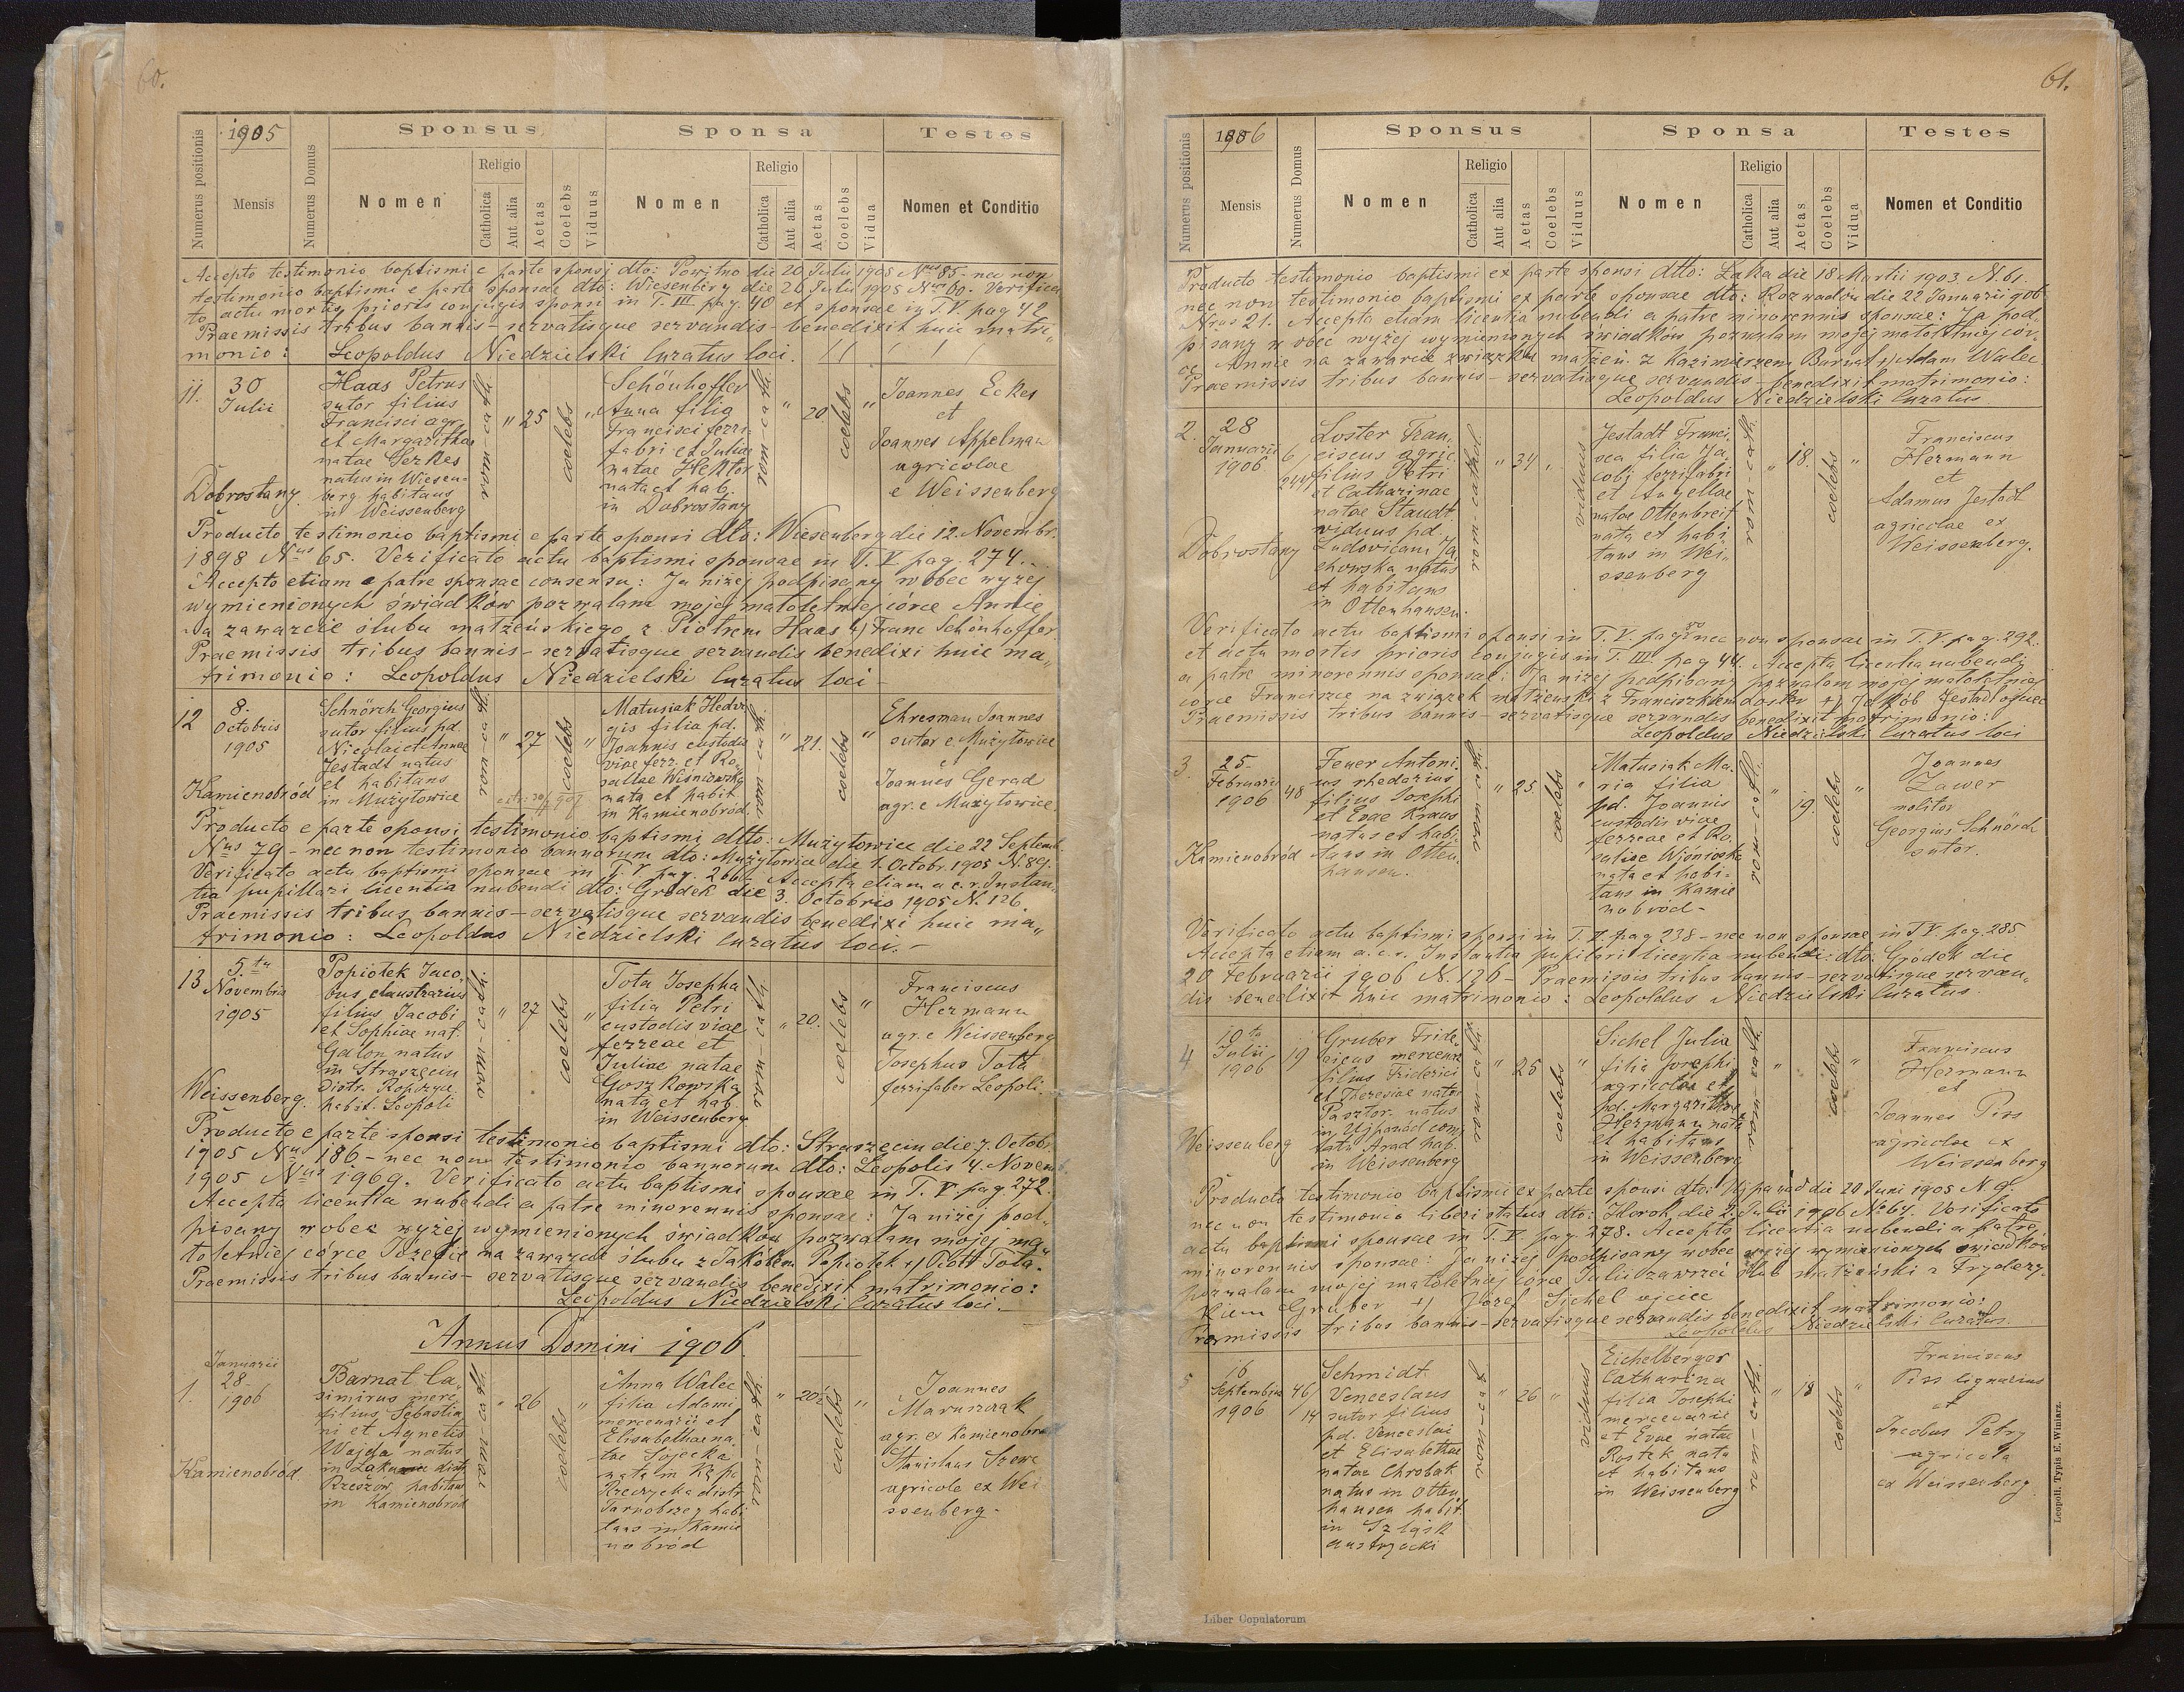 60.
1905
Numerus positionis
Mensis
Numerus Domus
Sponsus
Nomen
Religio
Catholica
Aut alia
Aetas
Coelebs
Viduus
Sponsa
Nomen
Religio
Catholica
Aut alia
Aetas
Coelebs
Vidua
Testes
Nomen et Conditio
Accepto testimonio baptismi e parte sponsi dto: Powitno die 20 Julii 1905 Nrus 85 - nec non
testimonio baptismi e parte sponsae dto: Wiesenberg die 20 Julii 1905 Nrus 60. Verifica
to actu mortis prioris conjugis sponsi in T. III pag. 40 et sponsae in T. V. pag 42
Praemissis tribus bannis - servatisque servandis - benedixit huic matri
monio: Leopoldus Niedzielski Curatus loci.
11.
30
Julii
Dobrostany
Haas Petrus
sutor filius
Francisci agr.
et Margaritha
natae Serkes
natus in Wiesen-
berg habitans
in Weissenberg
rom-cath.
"
25
coelebs
"
Schönhoffer
Anna filia
Francisci ferri
fabri et Juliae
natae Hektor
nata et hab.
in Dobrostany
rom-cath.
"
20.
coelebs
"
Joannes Eckes
et
Joannes Appelman
agricolae
e Weissenberg
Producto testimonio baptismi e parte sponsi dto: Wiesenberg die 12. Novembr.
1898 Nus 65. Verificato actu baptismi sponsae in T. V pag. 274.
Accepto etiam a patre sponsae consensu: Ja niżej podpisany wobec wyżej
wymienionych świadków pozwalam mojej małoletniej córce Annie
na zawarcie ślubu małżeńskiego z Piotrem Haas +) Franc Schönhoffer.
Praemissis tribus bannis - servatisque servandis benedixi huic ma„
trimonio: Leopoldus Niedzielski Curatus loci -
12
8.
Octobris
1905
Kamienobród
Schnörch Georgius
sutor filius pd.
Nicolai et Annae
Jestadt natus
et habitans
in Mużyłowice
rom-cath.
"
27
coelebs
"
Matusiak Hedvi
gis filia pd.
Joannis custodis
viae ferr. et Ro„
saliae Wiśniowska
nata et habit.
in Kamienobród.
rom-cath.
"
21.
coelebs
"
Ehresman Joannes
sutor e Mużyłowice
Joannes Gerad
agr. e Mużyłowice.
Producto e parte sponsi testimonio baptismi dtto: Mużyłowice die 22 Septemb.
Nus 79 - nec non testimonio bannorum dto: Mużyłowice die 1. Octobr. 1905 N. 89.
Verificato actu baptismi sponsae in T. V. pag. 266. Accepta etiam a c. r. Instan„
tia pupillari licentia nubendi dto: Gródek die 3. Octobris 1905 N. 126.
Praemissis tribus bannis - servatisque servandis benedixi huic ma„
trimonio: Leopoldus Niedzielski Curatus loci. -
13
5.ta
Novembris
1905
Weissenberg.
Popiołek Jaco
bus claustrarius
filius Jacobi
et Sophiae nat.
Galon natus
in Straszęcin
Distr. Ropczyce
habit. Leopoli
rom-cath.
"
27
coelebs
"
Tota Josepha
filia Petri
custodis viae
ferreae et
Juliae natae
Goszkowska
nata et hab.
in Weissenberg
rom-cath.
"
20.
coelebs
"
Franciscus
Hermann
agr. e Weissenberg
Josephus Tota
ferrifaber Leopoli.
Producto e parte sponsi testimonio baptismi dto: Straszęcin die 7. Octobr.
1905 Nus 186 - nec non testimonio bannorum dto: Leopolis 4. Novemb.
1905 Nus 1969. Verificato actu baptismi sponsae in T. V pag. 272.
Accepta licentia nubendi a patre minorennis sponsae: Ja niżej pod„
pisany wobec wyżej wymienionych świadków pozwalam mojej ma„
toletniej córce Józefie na zawarcie ślubu z Jakóbem Popiołek +) Piotr Tota.
Praemissis tribus bannis - servatisque servandis benedixit matrimonio:
Leopoldus Niedzielski Curatus loci.
Annus Domini 1906
1.
Januarii
28.
1906
Kamienobród
Barnat Ca„
simirus merc.
filius Sebastia
ni et Agnetis
Wajda natus
in Łąka distr.
Rzeszów habitans
in Kamienobród
rom-cath.
"
26
coelebs
"
Anna Walec
filia Adami
mercenarii et
Elisabethae na„
tae Sojecka
nata in Kępa
Rzeczycka distr.
Tarnobrzeg habi
tans in Kamie
nobród
rom-cath.
"
20½
coelebs
"
Joannes
Maruszczak
agr. ex Kamienobród
Stanislaus Szewc
agricole ex Wei
ssenberg -
61.
1906
Numerus positionis
Mensis
Numerus Domus
Sponsus
Nomen
Religio
Catholica
Aut alia
Aetas
Coelebs
Viduus
Sponsa
Nomen
Religio
Catholica
Aut alia
Aetas
Coelebs
Vidua
Testes
Nomen et Conditio
Producto testimonio baptismi ex parte sponsi dtto: Łąka die 18 Martii 1903. N. 61.
nec non testimonio baptismi ex parte sponsae dto: Rozwadów die 22 Januarii 906
Nrus 21. Accepta etiam licentia nubendi a patre minorennis sponsae: Ja pod„
pisany w obec wyżej wymienionych świadków pozwalam mojej małoletniej cór„
ce Annie na zawarcie związku małżeń. z Kazimierzem Barnat +) Adam Walec
Praemissis tribus bannis - servatisque servandis - benedixit matrimonio:
Leopoldus Niedzielski Curatus
2.
28
Januarii
1906
Dobrostany
6
Loster Fran„
ciscus agric.
filius Petri
et Catharinae
natae Staudt
viduus pd.
Ludovicam Ja
chowska natus
et habitans
in Ottenhausen.
rom-cathol
"
34
"
viduus
Jestadt Franci„
sca filia Ja„
cobi ferrifabri
et Angellae
natae Ottenbreit
nata et habi„
tans in Wei„
ssenberg
rom-cath.
"
18.
coelebs
"
Franciscus
Hermann
et
Adamus Jestadt
agricolae ex
Weissenberg.
Verificato actu baptismi sponsi in T. V. pag 80 nec non sponsae in T. V. pag. 292.
et actu mortis prioris conjugis in T. III. pag 44. Accepta licentia nubendi
a patre minorennis sponsae: Ja niżej podpisany pozwalam mojej małoletniej
córce Franciszce na związek małżeński z Franciszkiem Loster +) Jakób Jestad ojciec
Praemissis tribus bannis - servatisque servandis benedixit matrimonio:
Leopoldus Niedzielski Curatus loci
3.
25
Februarii
1906
Kamienobród
48
Feuer Antoni„
us rhedarius
filius Josephi
et Evae Kraus
natus et habi„
tans in Otten„
hausen.
rom-cath
"
25
coelebs
"
Matusiak Ma„
ria filia
pd. Joannis
custodis viae
ferreae et Ro„
saliae Wiśniowska
nata et habi„
tans in Kamie
nobród -
rom-cath.
"
19.
coelebs
"
Joannes
Zawer
molitor
Georgius Schnörch
sutor.
Verificato actu baptismi sponsi in T. V. pag 238 - nec non sponsae in T. V. pag. 285
Accepta etiam a. c. r. Instantia pupilari licentia nubendi dto: Gródek die
20 Februarii 1906 N. 126 - Praemissis tribus bannis - servatisque servan„
dis benedixit huic matrimonio: Leopoldus Niedzielski Curatus.
4
10ta
Julii
1906
Weissenberg
19
Gruber Fride„
ricus mercenar.
filius Friderici
et Theresiae natae
Pasztor natus
in Ujpanad comi
tatu Arad hab.
in Weissenberg
rom-cath.
"
25
coelebs
"
Sichel Julia
filia Josephi
agricolae et
pd. Margarithae
Hermann nata
et habitans
in Weissenberg
rom-cath.
"
coelebs
"
Franciscus
Hermann
et
Joannes Piss
agricolae ex
Weissenberg
Producto testimonio baptismi ex parte sponsi dto: Ujpanad die 20 Juni 1905 N. 9.
nec non testimonio liberi status dto: Horok die 2. Julii 1906 No 64. Verificato
actu baptismi sponsae in T. V. pag. 278. Accepta licentia nubendi a patre
minorennis sponsae: Ja niżej podpisany wobec wyżej wymienionych świadków
pozwalam mojej małoletniej córce Julii zawrzeć ślub małżeński z Frydery„
kiem Gruber +) Józef Sichel ojciec
Praemissis tribus bannis - servatisque servandis benedixit matrimonio:
Leopoldus Niedzielski Curatus.
5
16
Septembris
1906
46/
14
Schmidt
Venceslaus
sutor filius
pd. Venceslai
et Elisabethae
natae Chrobak
natus in Otten„
hausen habit.
in Szląsk
austrjacki
rom-cath
"
26
"
viduus
Eichelberger
Catharina
filia Josephi
mercenarii
et Evae natae
Rostek nata
et habitans
in Weissenberg
rom-cath.
"
18
coelebs
"
Franciscus
Piss lignarius
et
Jacobus Petry
agricola
ex Weissenberg
Leopoli. Typis E. Winiarz.
Liber Copulatorum